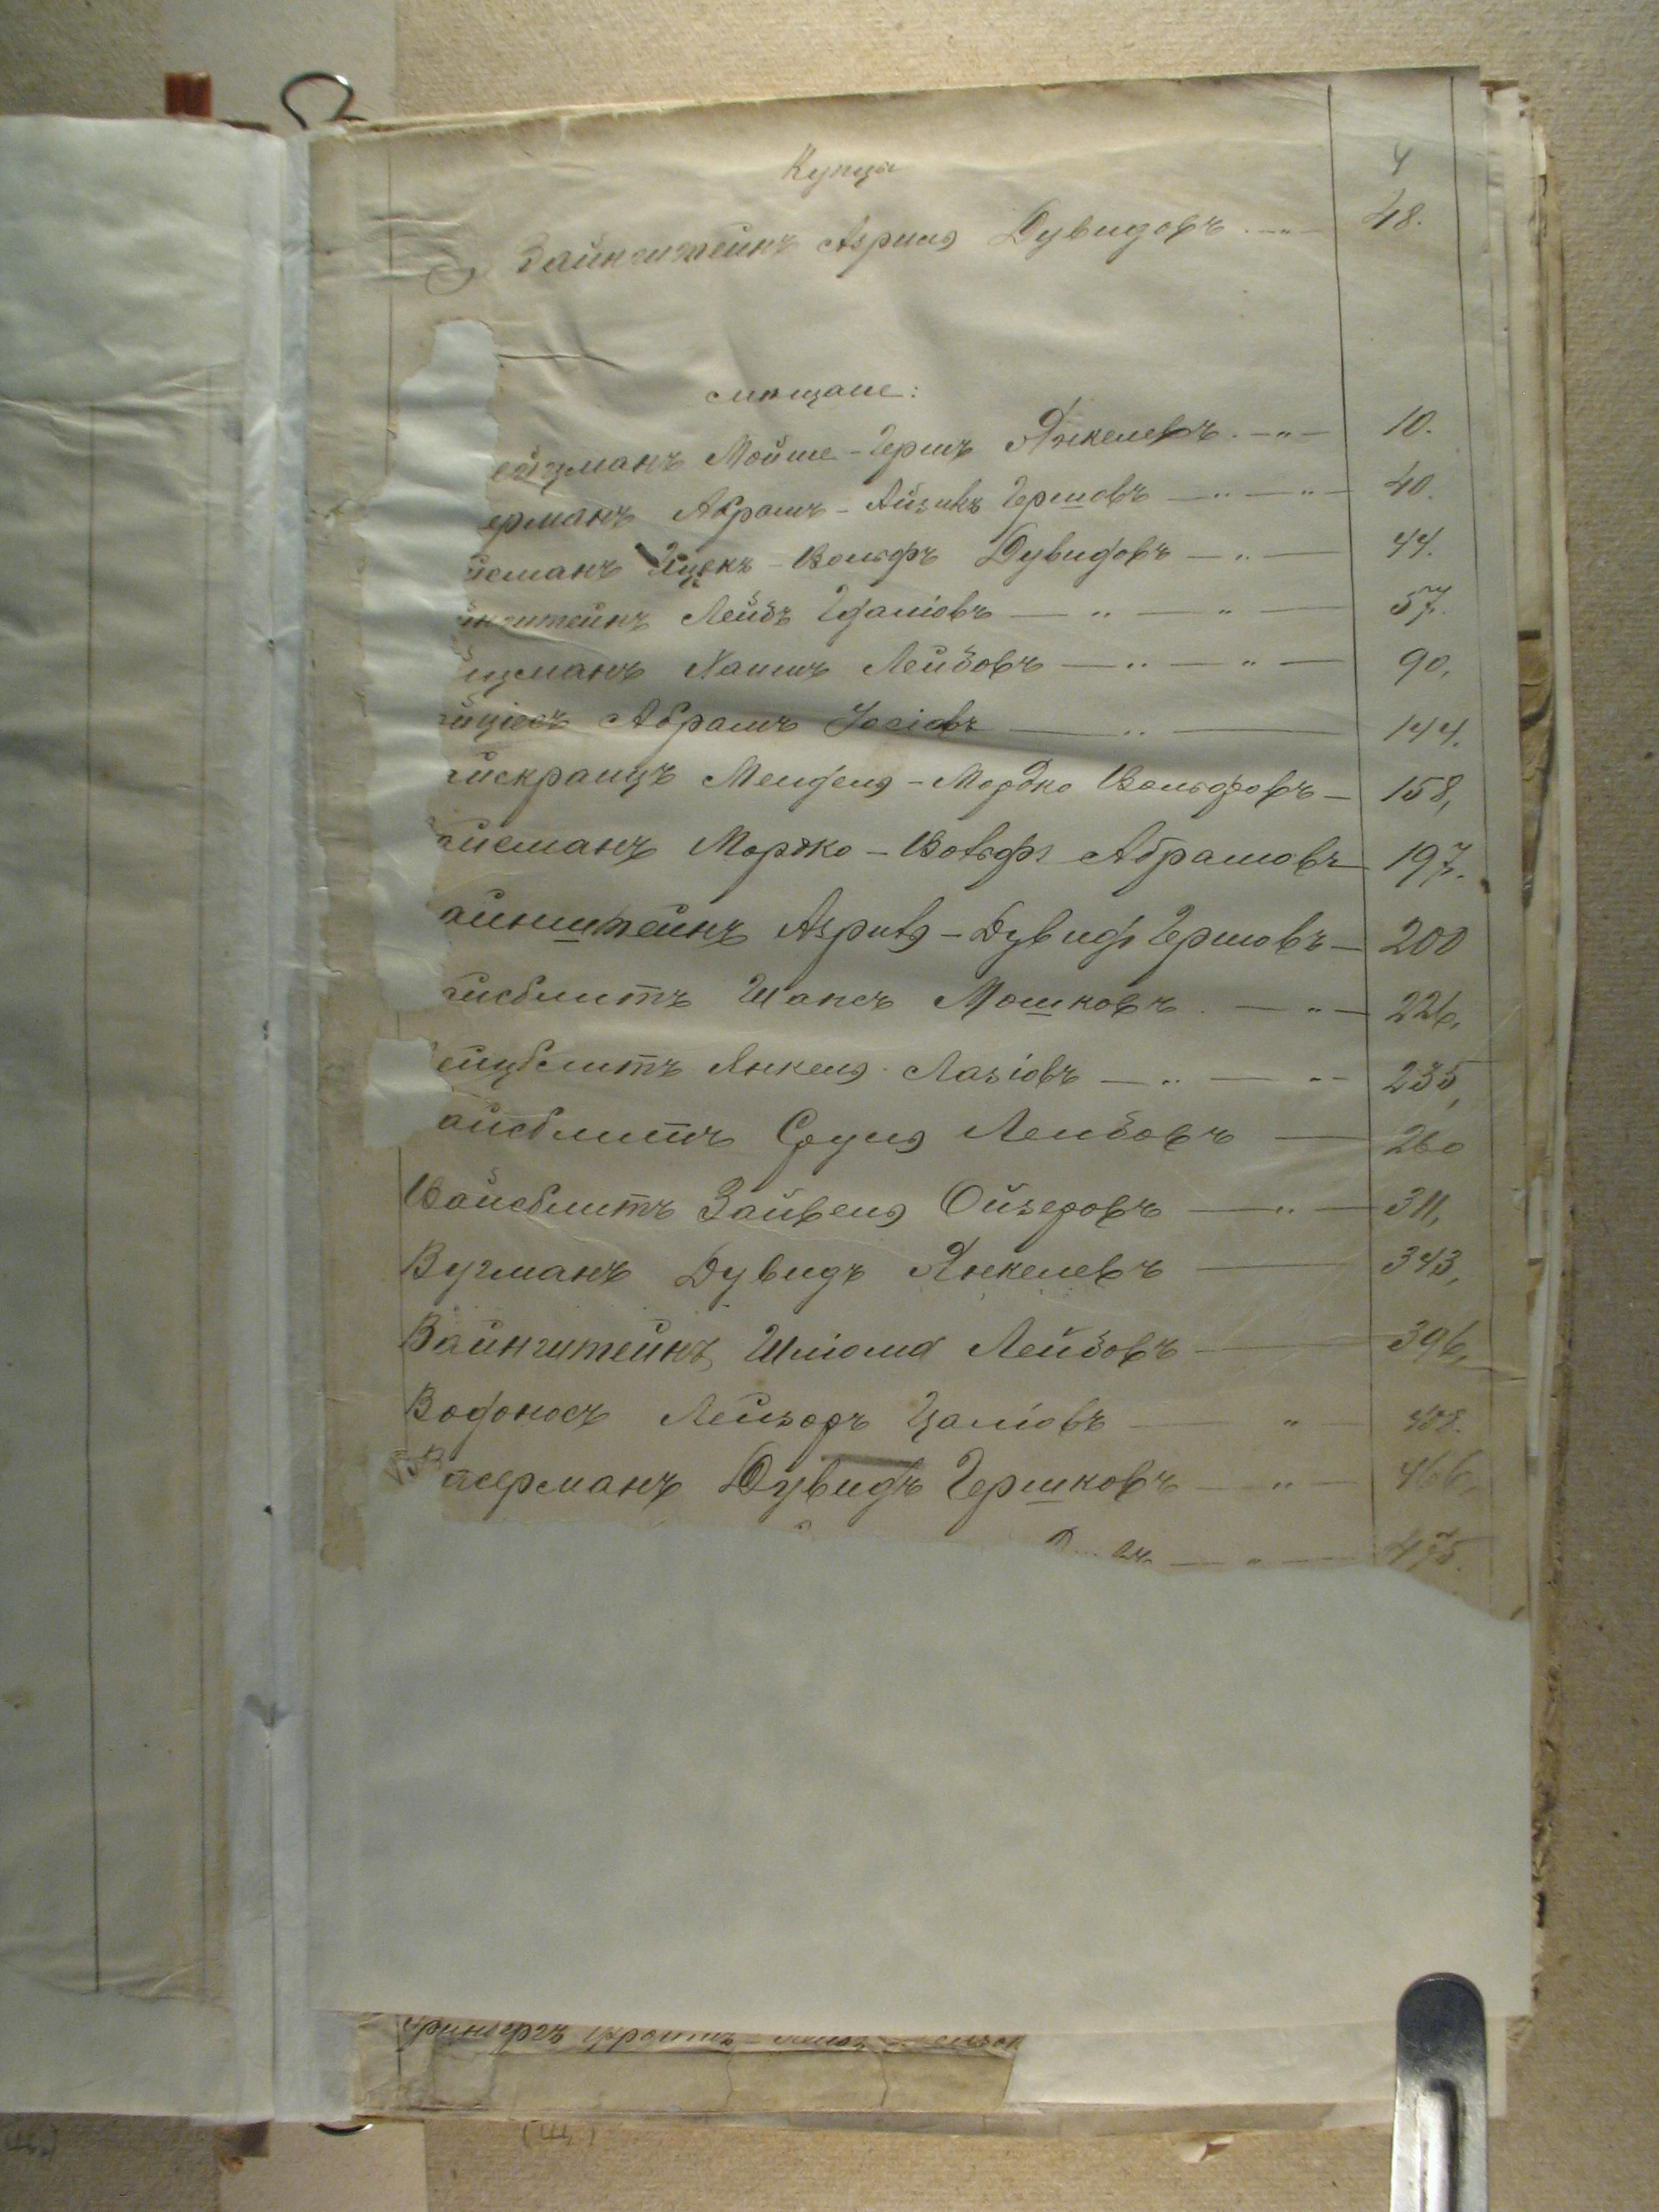 Купцы
4
Вайнштейнъ Азриля Дувидовъ 48.
мѣщане:
ейцманъ Мойше-Гершъ Янкелевъ 10.
ерманъ Абрамъ-Айзикъ Гершовъ 40.
йсманъ Ицекъ-Вольфъ Дувидовъ 44.
йнштейнъ Лейбъ Цаліовъ 57.
йцманъ Хаимъ Лейбовъ 90,
Абрамъ Іосіовъ 144.
йскранцъ Менделя-Мордко Вольфовъ 158,
айсманъ Мордко-Вольфъ Абрамовъ 197.
айнштейнъ Азриля-Дувидъ Гершовъ 200
айсблитъ Шапсъ Мошковъ 226,
ейцблитъ Янкеля Лазіовъ 235,
айсблитъ Сруля Лейбовъ 260
Вайсблитъ Зайвеля Ойзеровъ 311,
Вугманъ Дувидъ Янкелевъ 343,
Вайнштейнъ Шліома Лейбовъ 396,
Водоносъ Лейзоръ Цаліовъ 408.
Васерманъ Дувидъ Гершковъ 466,
475.
(Щ)